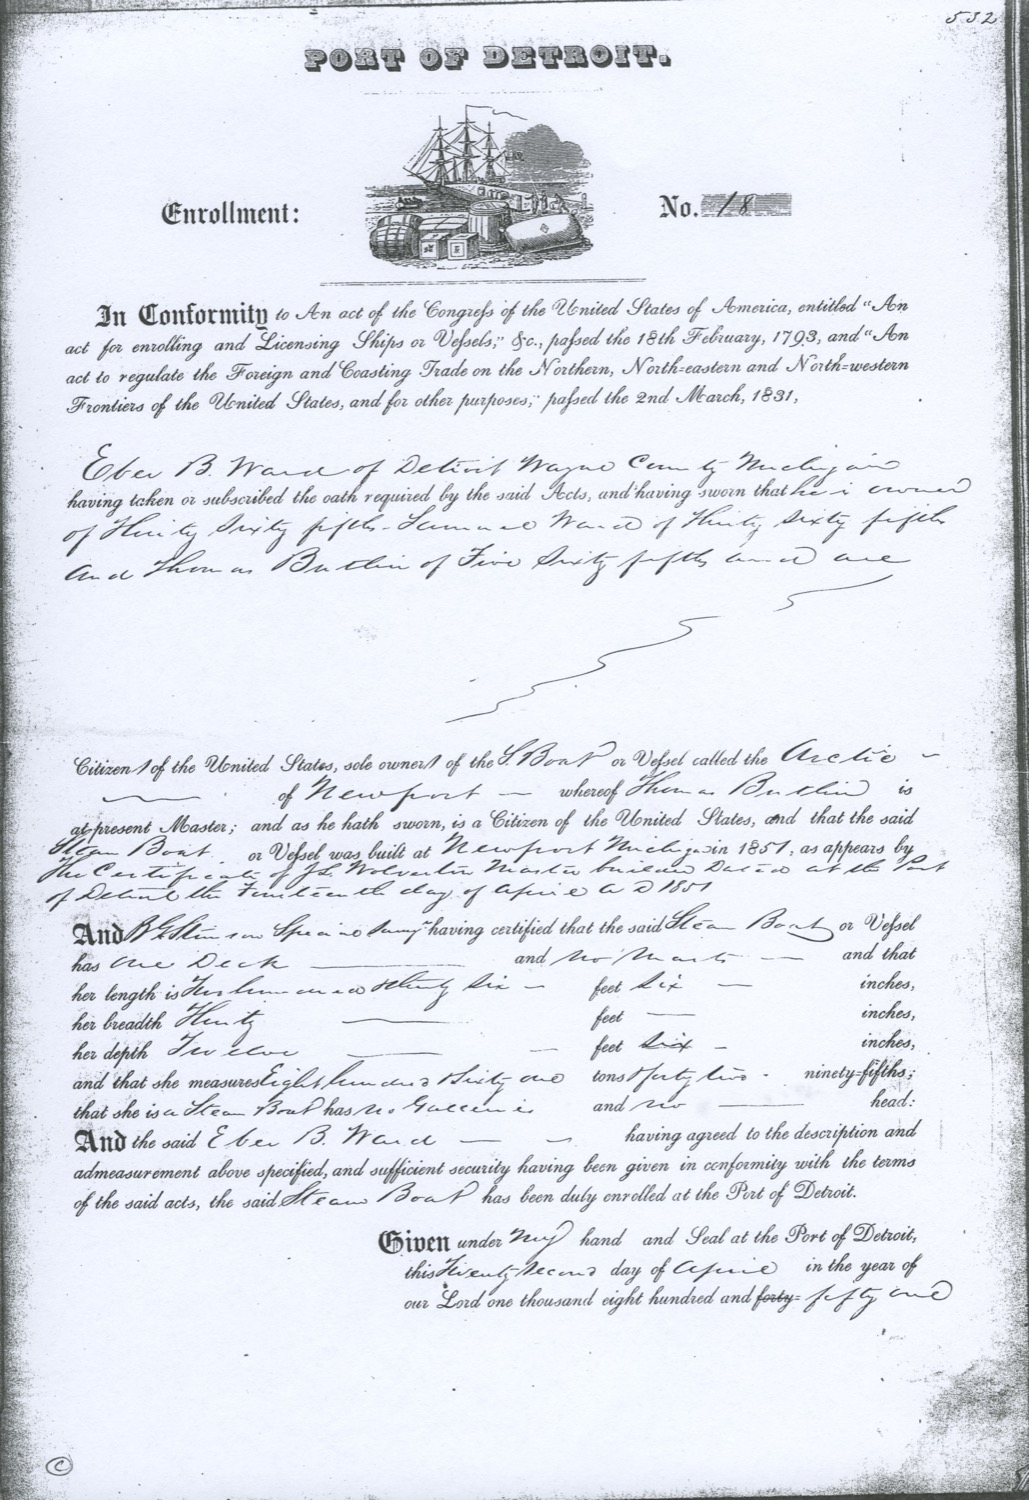 532
PORT OF DETROIT.
Enrollment:
No. 18
In Conformity to An act of the Congreſs of the United States of America, entitled "An
act for enrolling and Licensing Ships or Veſsels," &c., paſsed the 18th February, 1793, and "An
act to regulate the Foreign and Coasting Trade on the Northern, North=eastern and North=western
Frontiers of the United States, and for other purposes;" paſsed the 2nd March, 1831,
Eber B. Ward of Detroit Wayne County Michigan
having taken or subscribed the oath required by the said Acts, and having sworn that he is owner
of Thirty Sixty fifths Samuel Ward of Thirty Sixty fifths
and Thomas Butlin of Five Sixty fifths and are
Citizens of the United States, sole owners of the S. Boat or Veſsel called the Arctic
of Newport whereof Thomas Butlin is
at present Master; and as he hath sworn, is a Citizen of the United States, and that the said
Steam Boat or Veſsel was built at Newport Michigan in 1851, as appears by
The Certificate of J. L. Wolverton Master builder Dated at the Port
of Detroit the Fourteenth day of April A D 1851
And B. G. Stimson Special Survyr having certified that the said Steam Boat or Veſsel
has one Deck and no Masts and that
her length is Two hundred & thirty Six feet Six inches,
her breadth Thirty feet inches,
her depth Twelve feet Six inches,
and that she measures Eight hundred & Sixty one tons & forty two ninety=fifths;
that she is a Steam Boat has no Galleries and no head:
And the said Eber B. Ward having agreed to the description and
admeasurement above specified, and sufficient security having been given in conformity with the terms
of the said acts, the said Steam Boat has been duly enrolled at the Port of Detroit.
Given under my hand and Seal at the Port of Detroit,
this Twenty Second day of April in the year of
our Lord one thousand eight hundred and forty= fifty one
C